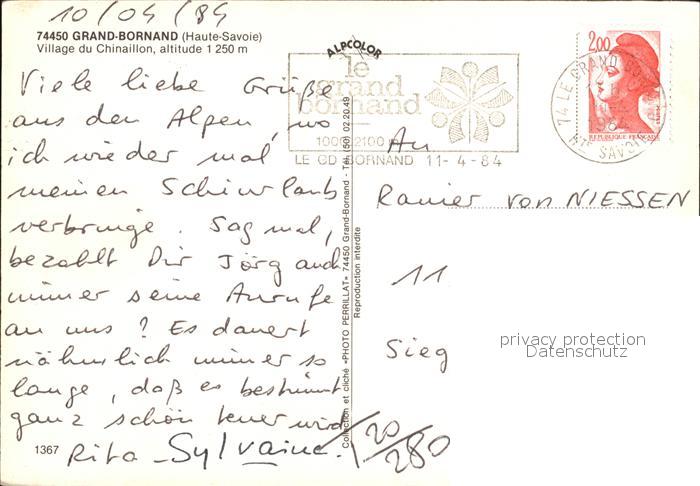 10/04/84
74450 GRAND-BORNAND (Haute-Savoie)
Village du Chinaillon, altitude 1 250 m
Viele liebe Grüße
aus den Alpen, wo
ich wieder mal
meinen Schiurlaub
verbringe. Sag mal,
bezahlt Dir Jörg auch
immer seine Anrufe
an uns? Es dauert
nähmlich immer so
lange, daß es bestimmt
ganz schön teuer wird
Rita - Sylvaine.
1367
ALPCOLOR
Collection et cliché «PHOTO PERRILLAT» 74450 Grand-Bornand - Tél. (50) 02.20.49
Reproduction interdite
le
grand
bornand
1000 2100 m
LE GD BORNAND 11-4-84
74 LE GRAND BORNAND
1984
HTE SAVOIE
2,00
REPUBLIQUE FRANÇAISE
An
Rainer von NIESSEN
11
Sieg
privacy protection
Datenschutz
20/280